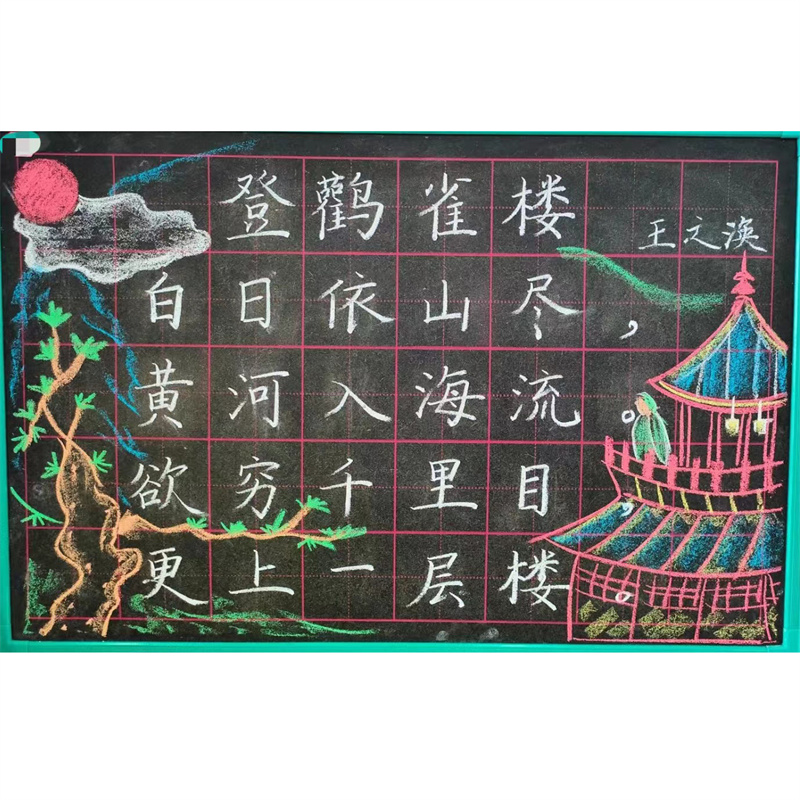 登鹳雀楼
王之涣
白日依山尽，
黄河入海流。
欲穷千里目，
更上一层楼。